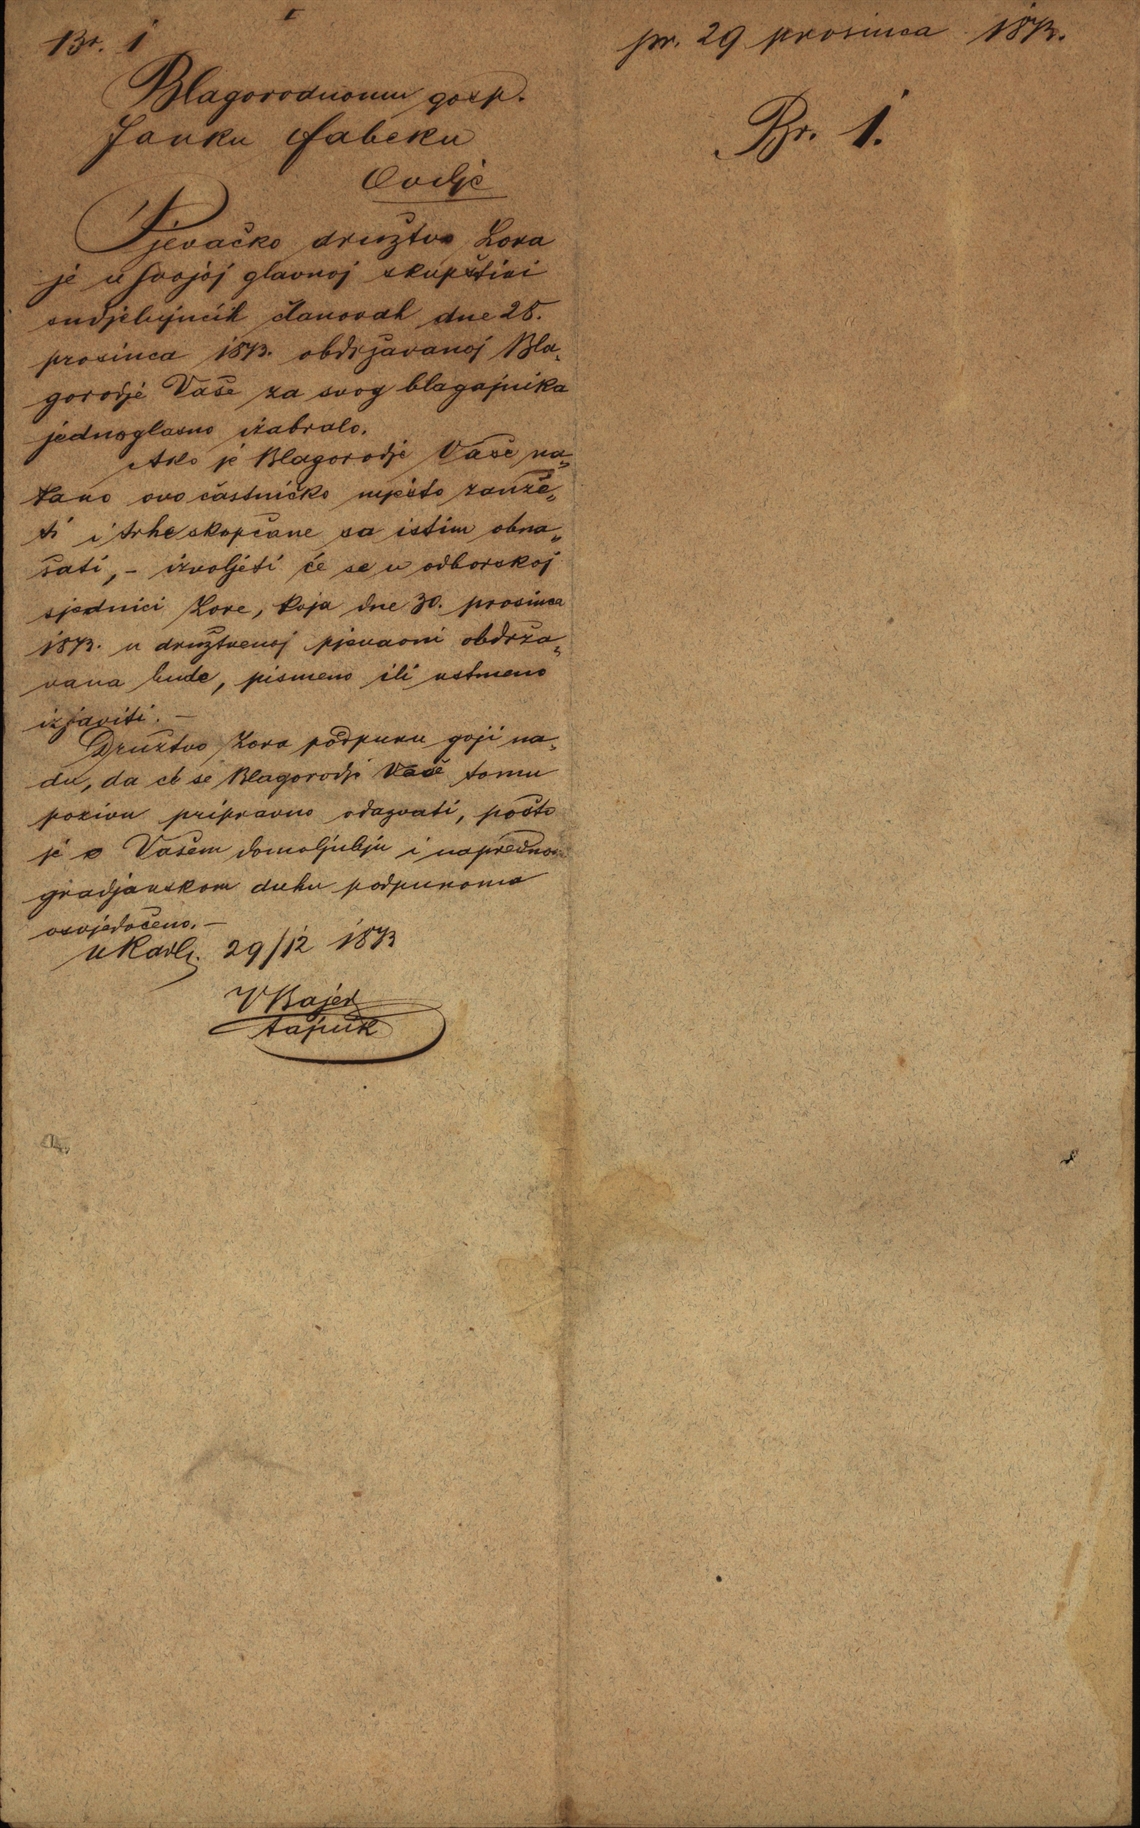 Br. 1
Blagorodnomu gosp.
Janku Fabeku
Ovdje
Pjevačko družtvo Zora
je u svojoj glavnoj skupštini
sudjelujućih članovah dne 28.
prosinca 1873. obdržavanoj Bla„
gorodje Vaše za svog blagajnika
jednoglasno izabralo.
Ako je Blagorodje Vaše na„
kano ovo častničko mjesto zauze„
ti i svrhe skopčane sa istim obna„
šati, – izvoljeti će se u odborskoj
sjednici Zore, koja dne 30. prosinca
1873. u družtvenoj pjevaoni obdrža„
vana bude, pismeno ili ustmeno
izjaviti. –
Družtvo Zora podpunu goji na„
du, da će se Blagorodje Vaše tomu
pozivu pripravno odazvati, pošto
je o Vašem domoljublju i naprednom
gradjanskom duhu podpunoma
osvjedočeno. –
u Karlc. 29/12 1873
tajnik
pr. 29 prosinca 1873.
Br. 1.